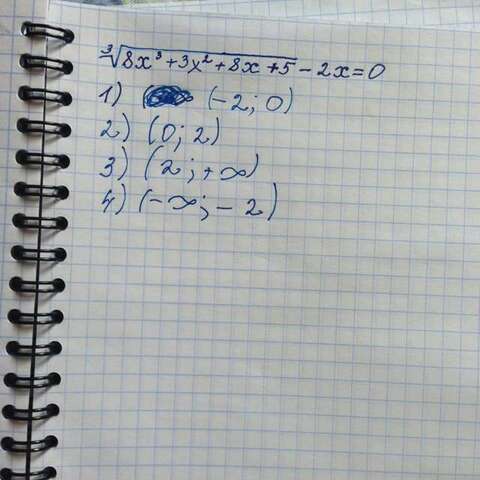 ∛(8x³+3x²+8x+5) - 2x=0
1) (-2; 0)
2) (0; 2)
3) (2; +∞)
4) (-∞; -2)